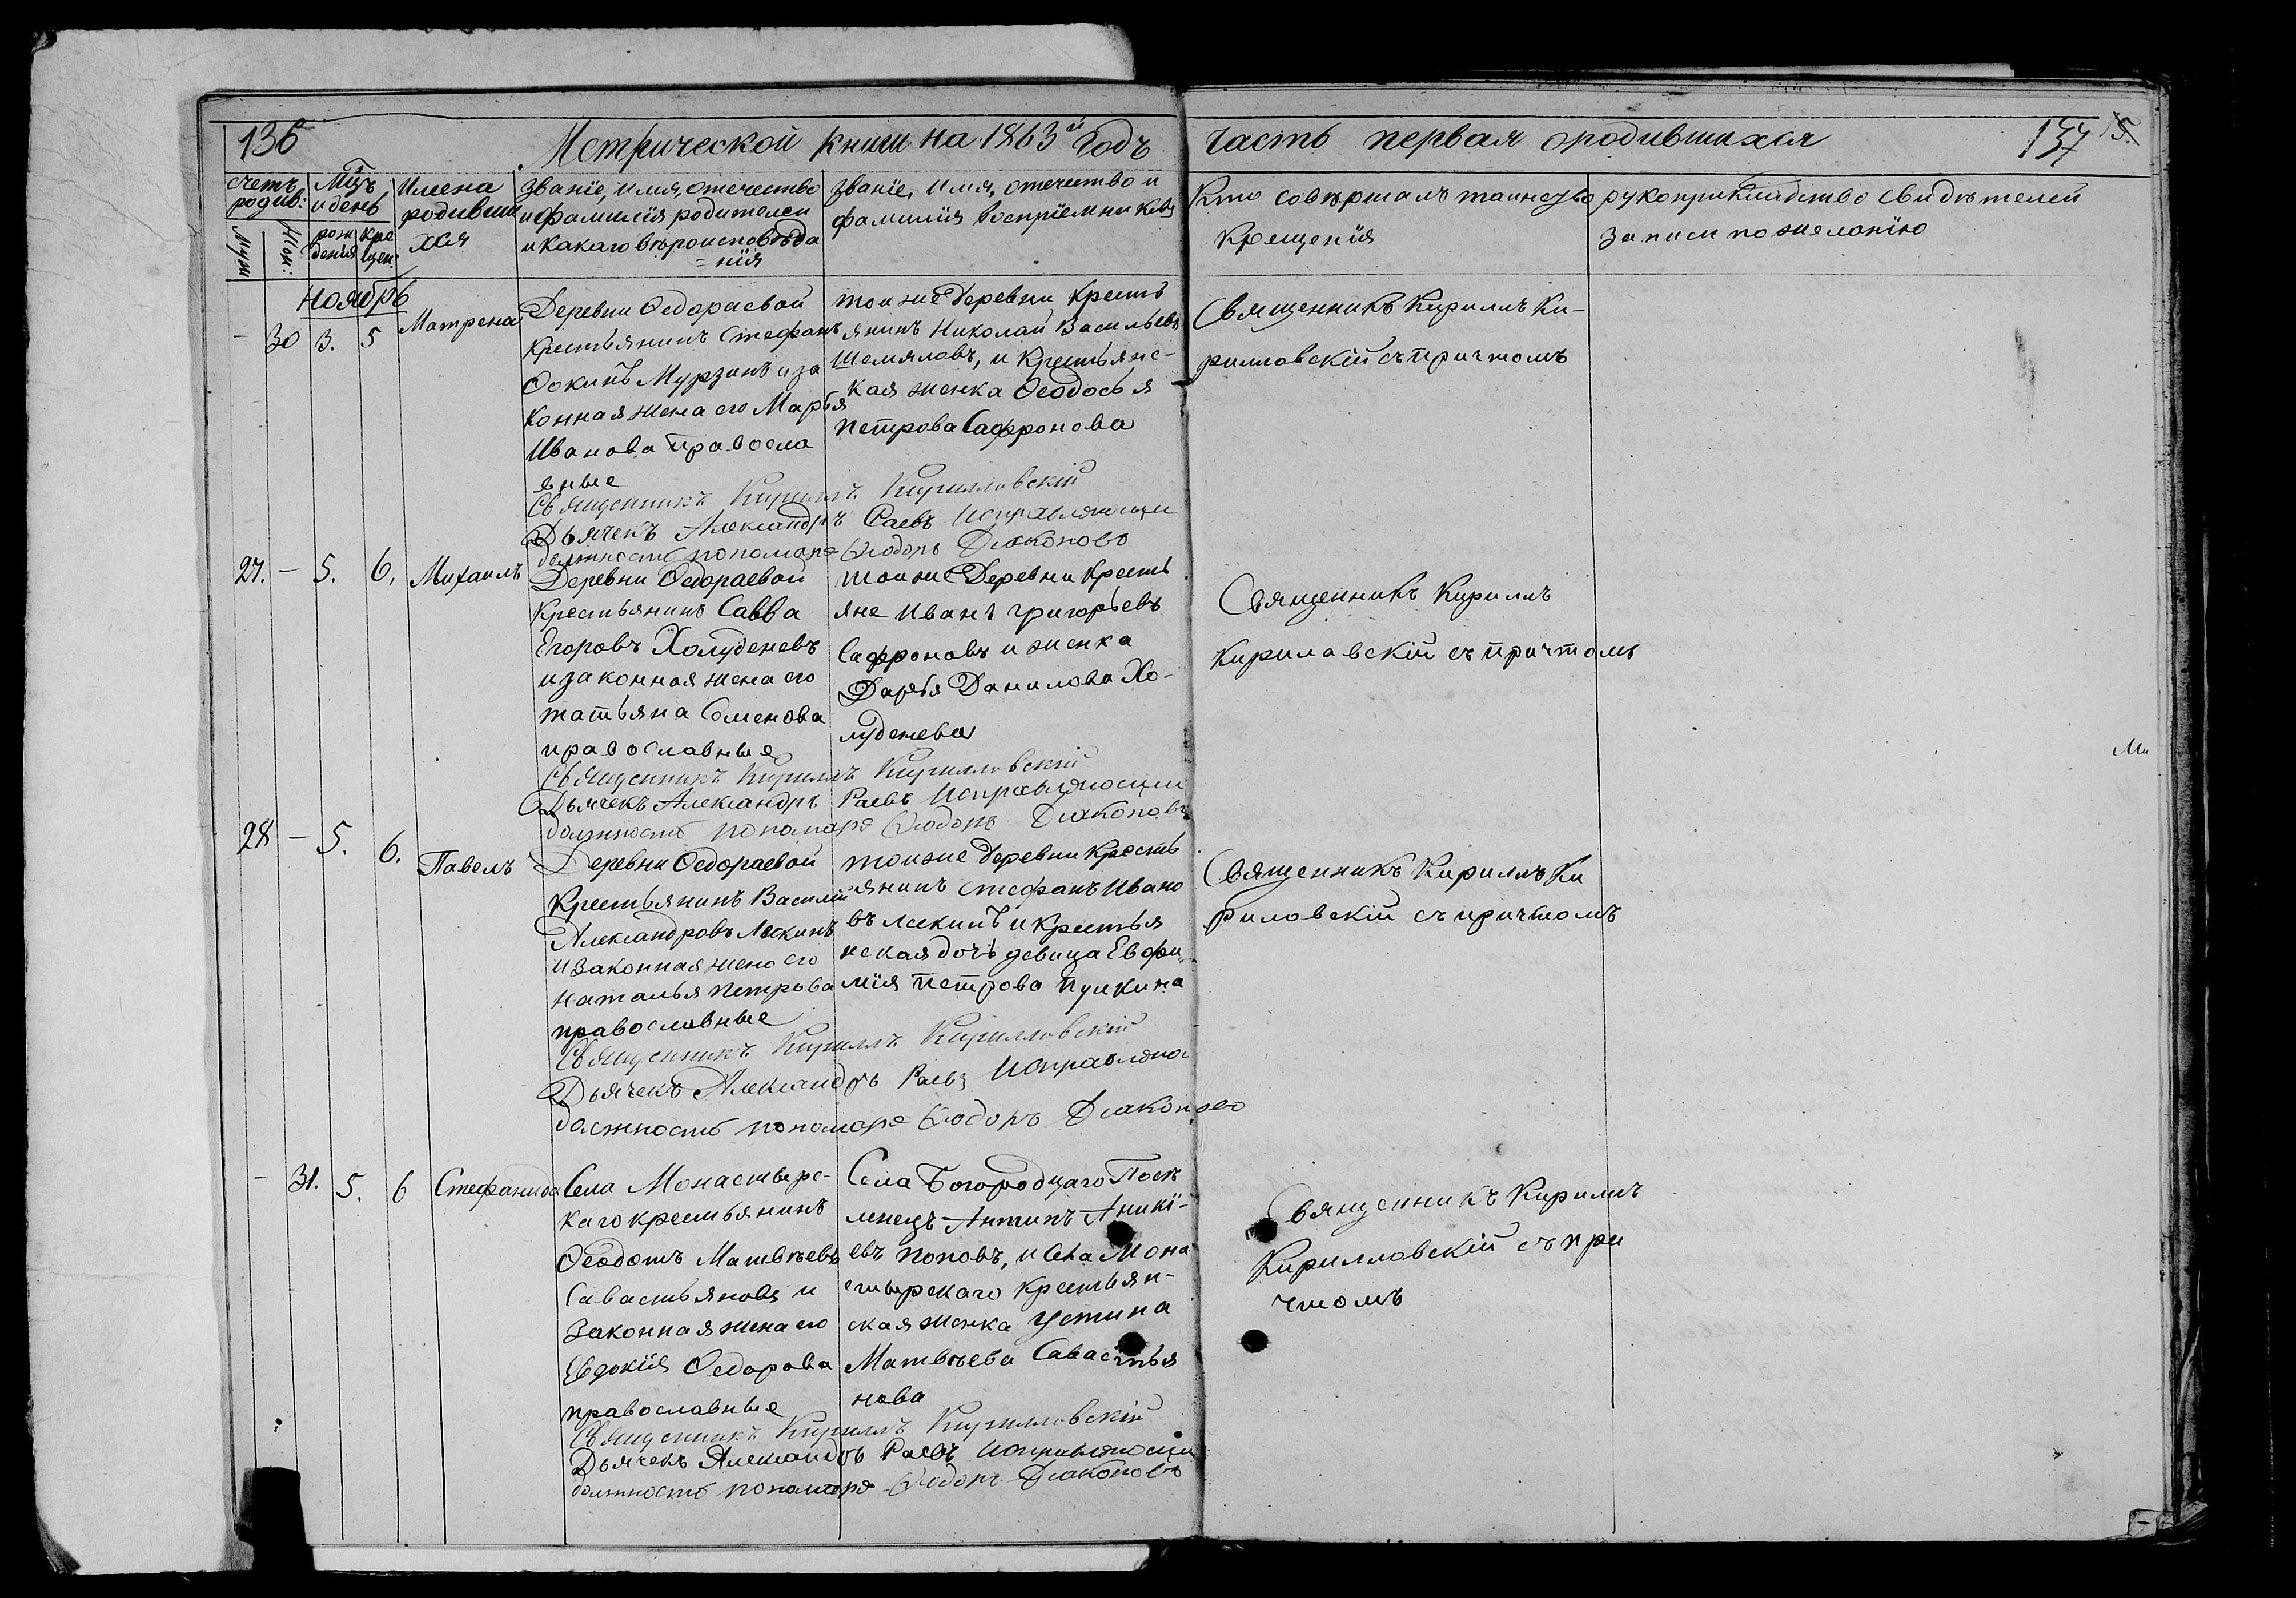 136
Метрической книги на 1863й годъ
часть первая ородившихся
137
15.
счетъ родив:
Мцъ и день
Имена родившихся
званіе, имя, отечество и фамилія родителей и какаго вѣроисповѣда=нія
званіе, имя, отечество и фамилія воспріемниковъ
Кто совѣршалъ таинство крещенія
рукоприкладство свидѣтелей записи по желанію
Муж
Жен:
рож дения
кре щен.
Ноябрь
– 30 3. 5 Матрена
Деревни Ѳедораевой
крестьянинъ Стефанъ
Ѳокинъ Мурзинъ и за
конная жена его Марья
Иванова правосла
вные
тоиже деревни кресть
янинъ Николай Васильевъ
Шемяловъ, и крестьянс-
кая женка Ѳеодосья
Петрова Сафронова
Священникъ Кириллъ Ки-
рилловскій съ причтомъ
Священникъ Кириллъ Кирилловскій
Дьячекъ Александръ Раевъ Исправляющи
должность пономаря Ѳиодоръ Диаконовъ
27. – 5. 6. Михаилъ
Деревни Ѳедораевой
Крестьянинъ Савва
Егоровъ Холуденевъ
и законная жена его
татьяна Семенова
православные
тоиже Деревни Кресть
яне Иванъ Григорьевъ
Сафроновъ и женка
Дарья Данилова Хо-
луденева
Священникъ Кириллъ
Кириловскій съ причтомъ
Ми
Священникъ Кириллъ Кирилловскій
Дьячекъ Александръ Раевъ Исправляющи
должность пономаря Ѳиодоръ Диаконовъ
28 – 5. 6. Павелъ
Деревни Ѳедораевой
Крестьянинъ Василій
Александровъ Лескинъ
и законная жена его
Наталья Петрова
православные
тоиже деревни кресть
янинъ Стефанъ Ивано
въ Лескинъ и крестья
нская дочь девица Евфи
мія Петрова Пуикина
Священникъ Кириллъ Ки
риловскій съ причтомъ
Священникъ Кириллъ Кирилловскій
Дьячекъ Александръ Раевъ Исправляю
должность пономаря Ѳиодоръ Диаконовъ
– 31. 5. 6 Стефанида
Села Монастырс-
каго крестьянинъ
Ѳеодотъ Матвѣевъ
Савастьяновъ и
законная жена его
Евдокія Ѳедорова
православные
Села Богородцаго Посѣ
ленецъ Антипъ Аникі-
евъ Поповъ, и Села Мона
стырскаго крестьян-
ская женка Устина
Матвѣева Савастья
нова
Священникъ Кириллъ
Кирилловскій съ при
чтомъ
Священникъ Кириллъ Кирилловскій
Дьячекъ Александръ Раевъ Исправляющи
должность пономаря Ѳиодоръ Диаконовъ